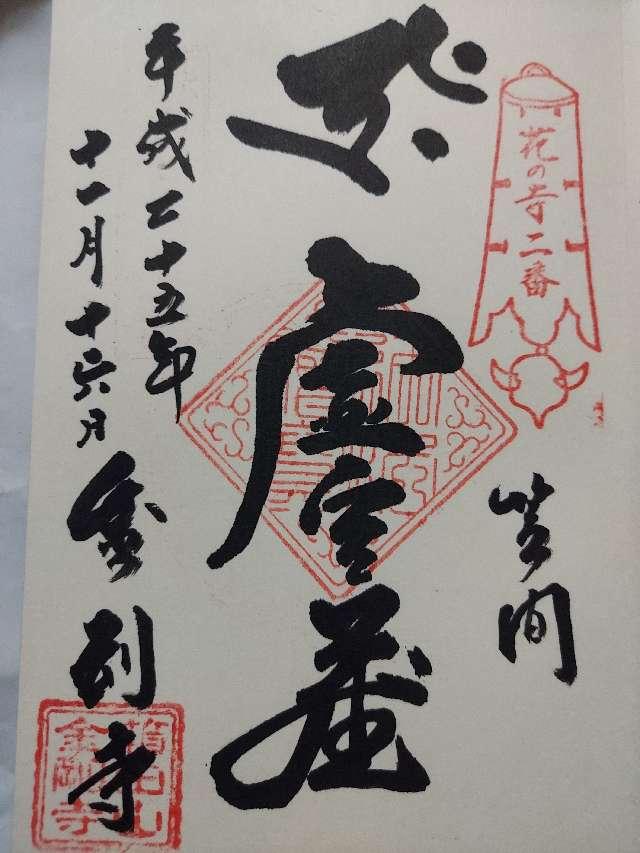 花の寺二番
笠間
虚空蔵
平成二十五年
十一月十六日
金剛寺
金剛寺